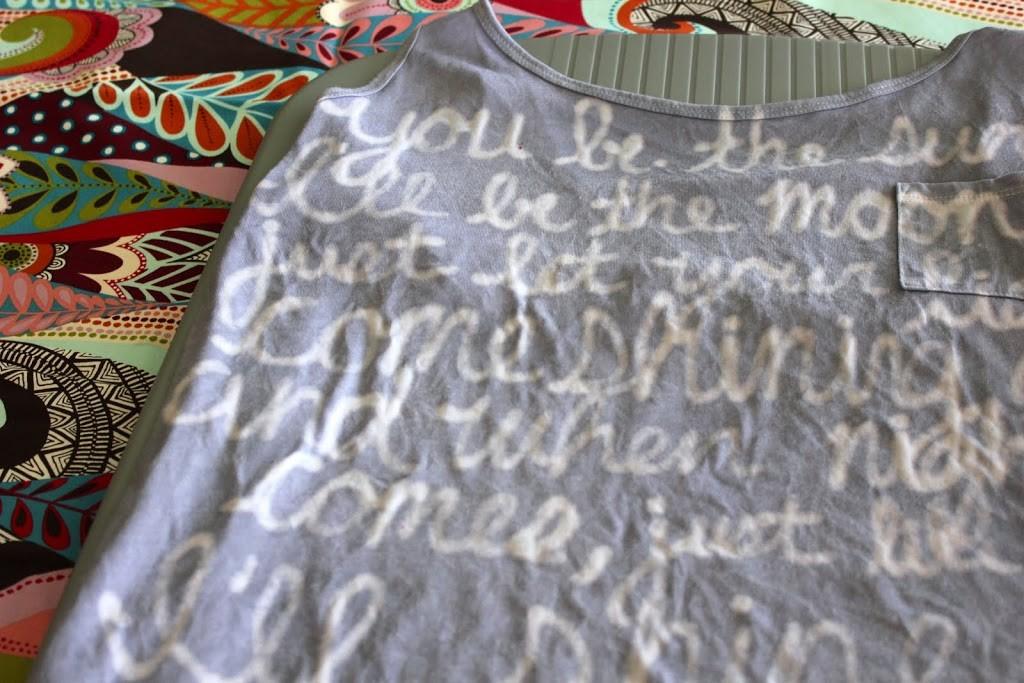 You be the sun
I'll be the moon
just let your
come shining
and when night
comes, just like
I'll shine